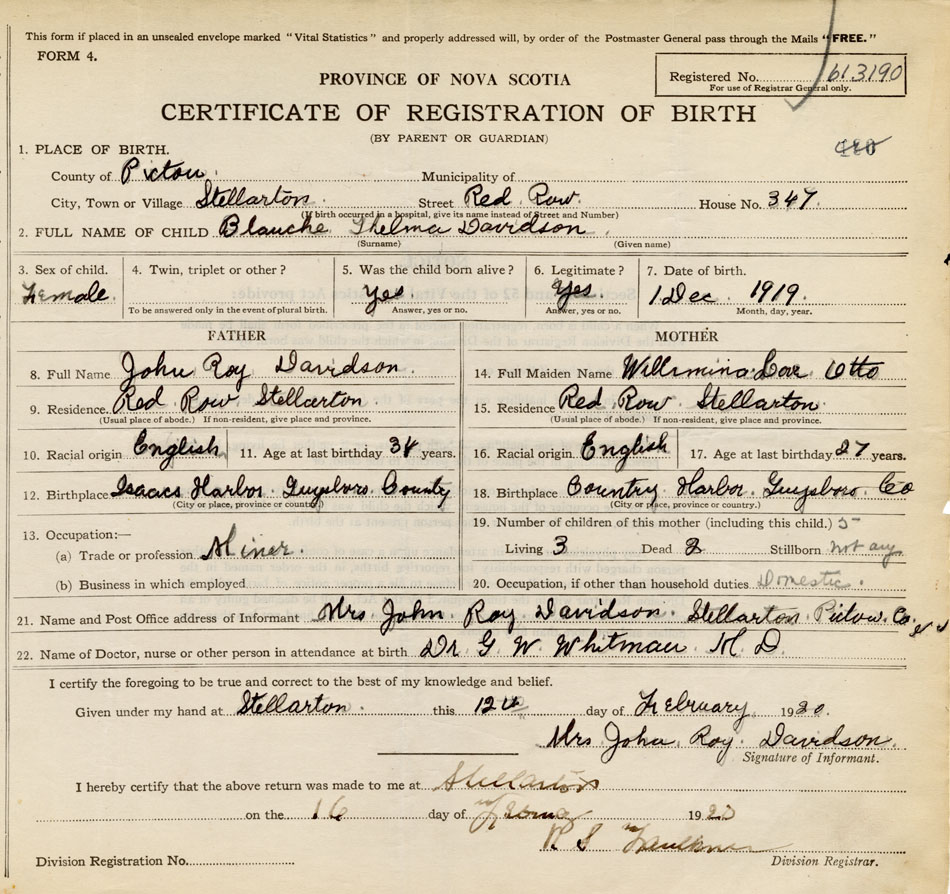 This form if placed in an unsealed envelope marked "Vital Statistics" and properly addressed will, by order of the Postmaster General pass through the Mails "FREE."
FORM 4.
PROVINCE OF NOVA SCOTIA
Registered No. 613190
For use of Registrar General only.
CERTIFICATE OF REGISTRATION OF BIRTH
(BY PARENT OR GUARDIAN)
1. PLACE OF BIRTH.
County of Pictou. Municipality of
City, Town or Village Stellarton. Street Red Row. House No. 347.
(If birth occurred in a hospital, give its name instead of Street and Number)
2. FULL NAME OF CHILD Blanche Thelma Davidson.
(Surname) (Given name)
3. Sex of child. 4. Twin, triplet or other? 5. Was the child born alive? 6. Legitimate? 7. Date of birth.
Female. Yes Yes. 1 Dec. 1919.
To be answered only in the event of plural birth. Answer, yes or no. Answer, yes or no. Month, day, year.
FATHER
8. Full Name John Roy Davidson.
9. Residence. Red Row Stellarton
(Usual place of abode.) If non-resident, give place and province.
10. Racial origin English 11. Age at last birthday 34 years.
12. Birthplace Isaacs Harbor. Guysboro. County
(City or place, province or country.)
13. Occupation:—
(a) Trade or profession Miner.
(b) Business in which employed
MOTHER
14. Full Maiden Name Willimina Otto
15. Residence Red Row Stellarton.
(Usual place of abode.) If non-resident, give place and province.
16. Racial origin English 17. Age at last birthday 27 years.
18. Birthplace Country Harbor. Guysboro. Co
(City or place, province or country.)
19. Number of children of this mother (including this child.) 5
Living 3 Dead 2 Stillborn not any
20. Occupation, if other than household duties Domestic.
21. Name and Post Office address of Informant Mrs John Roy Davidson. Stellarton Pictou. Co.
22. Name of Doctor, nurse or other person in attendance at birth Dr G W Whitman M D
I certify the foregoing to be true and correct to the best of my knowledge and belief.
Given under my hand at Stellarton. this 12th day of February 1920.
Mrs John Roy Davidson.
Signature of Informant.
I hereby certify that the above return was made to me at Stellarton
on the 16 day of 1920
Faulkner
Division Registration No. Division Registrar.